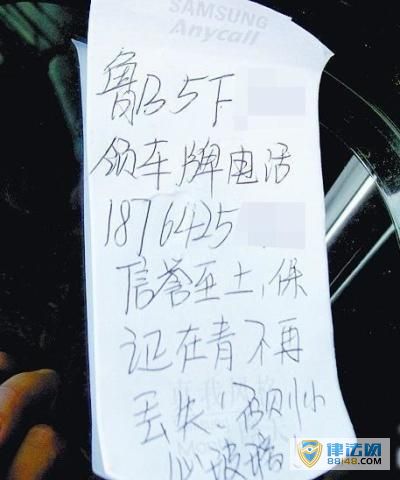 SAMSUNG
Anycall
鲁B5下
领车牌电话
1876425
信誉至上,保
证在青不再
丢失.否则小
心玻璃
律法网
88148.com